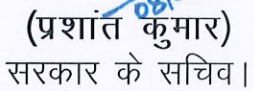 (प्रशांत कुमार)
सरकार के सचिव।